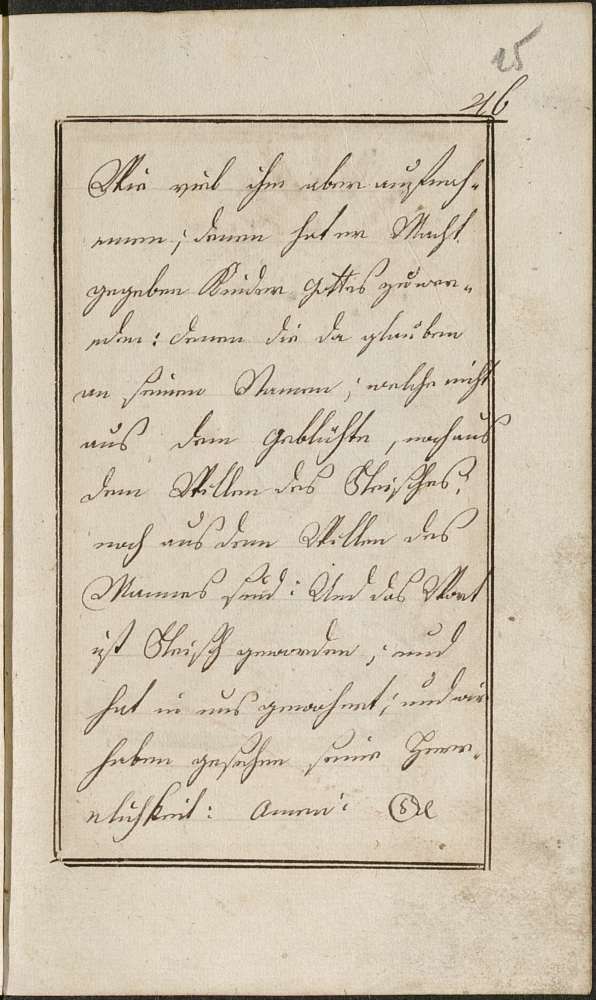 25
26
Wie viel ihn aber aufnah-
men; denen hat er Macht
gegeben Kinder Gottes zu wer-
den: denen die da glauben
an seinen Namen; welche nicht
aus dem Geblühte, noch aus
dem Willen des Fleisches,
noch aus dem Willen des
Mannes sind: Und das Wort
ist Fleisch geworden; und
hat in uns gewohnet; und wir
haben gesehen seine Herr-
lichkeit: Amen: